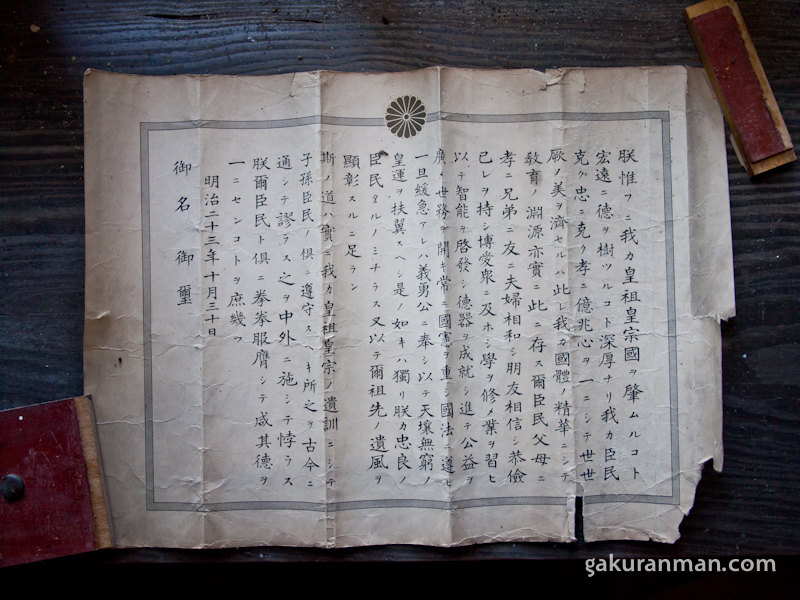 朕惟フニ我カ皇祖皇宗國ヲ肇ムルコト
宏遠ニ德ヲ樹ツルコト深厚ナリ我カ臣民
克ク忠ニ克ク孝ニ億兆心ヲ一ニシテ世世
厥ノ美ヲ濟セルハ此レ我カ國體ノ精華ニシテ
敎育ノ淵源亦實ニ此ニ存ス爾臣民父母ニ
孝ニ兄弟ニ友ニ夫婦相和シ朋友相信シ恭儉
己レヲ持シ博愛衆ニ及ホシ學ヲ修メ業ヲ習ヒ
以テ智能ヲ啓發シ德器ヲ成就シ進テ公益ヲ
廣メ世務ヲ開キ常ニ國憲ヲ重シ國法ニ遵ヒ
一旦緩急アレハ義勇公ニ奉シ以テ天壤無窮ノ
皇運ヲ扶翼スヘシ是ノ如キハ獨リ朕カ忠良ノ
臣民タルノミナラス又以テ爾祖先ノ遺風ヲ
顯彰スルニ足ラン
斯ノ道ハ實ニ我カ皇祖皇宗ノ遺訓ニシテ
子孫臣民ノ俱ニ遵守スキ所之ヲ古今ニ
通シテ謬ラス之ヲ中外ニ施シテ悖ラス
朕爾臣民ト俱ニ拳拳服膺シテ咸其德ヲ
一ニセンコトヲ庶幾フ
明治二十三年十月三十日
御名御璽
gakuranman.com